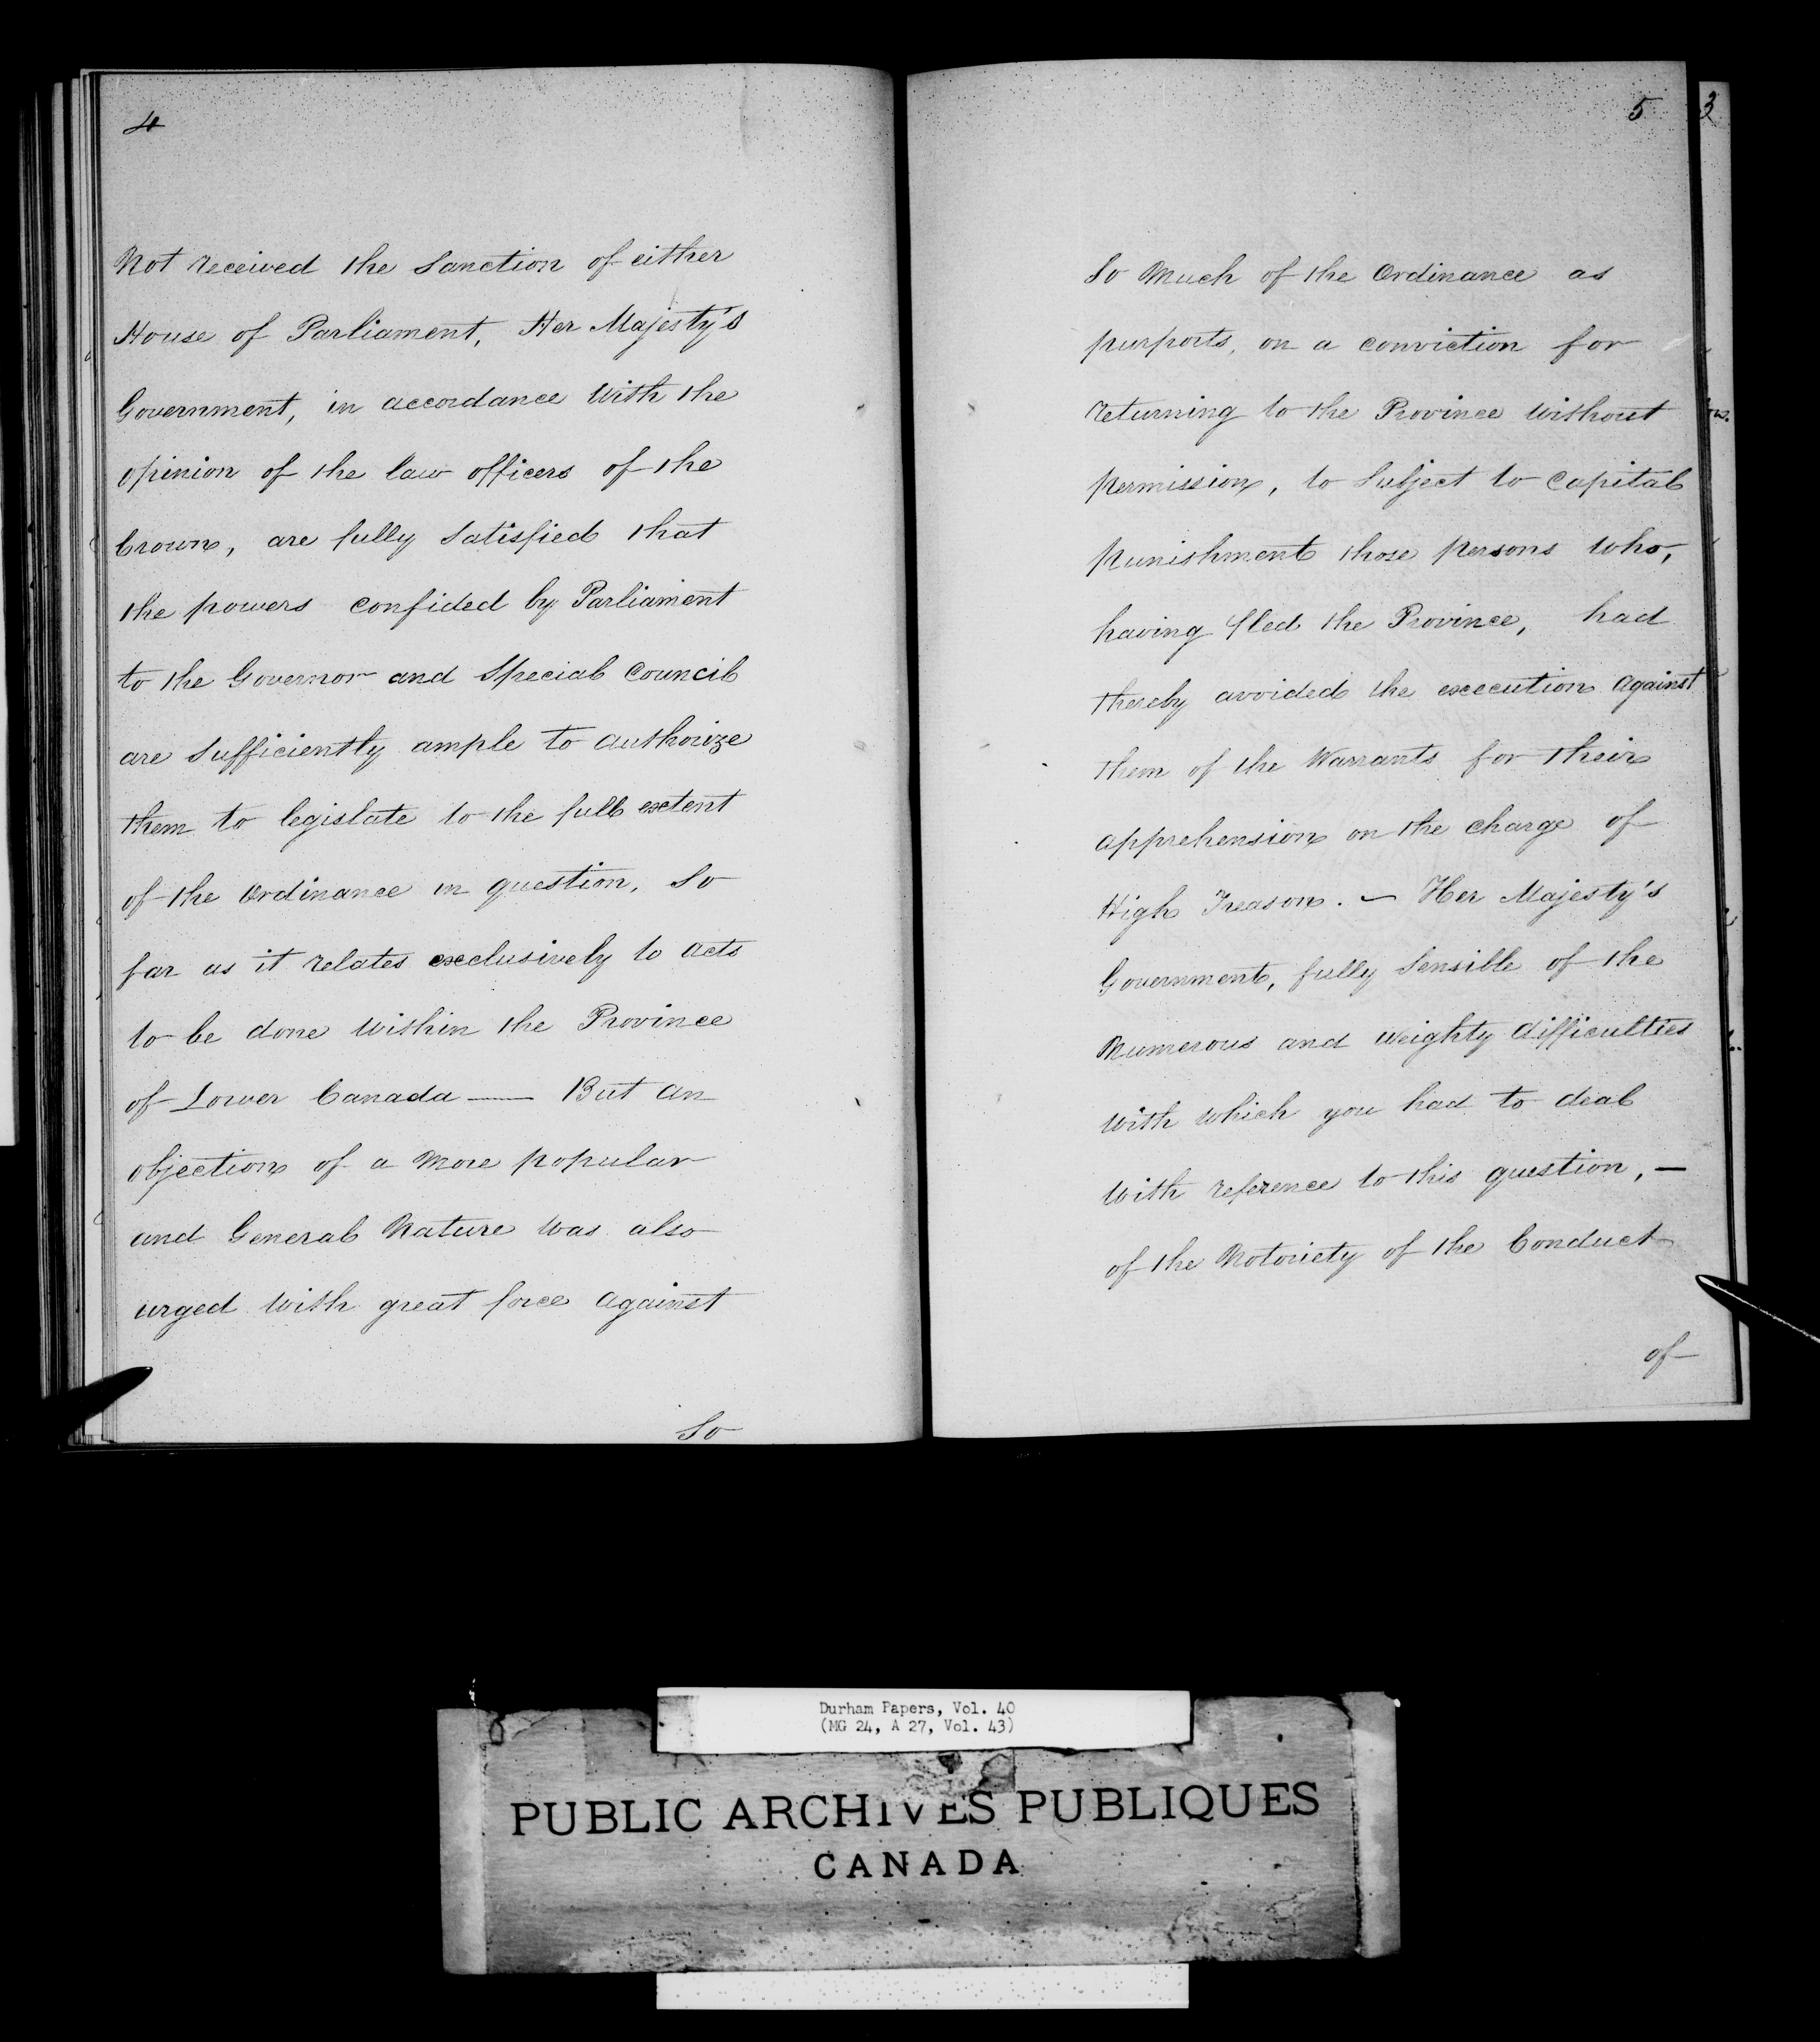 4
Not received the Sanction of either
House of Parliament, Her Majesty's
Government, in accordance with the
opinion of the law officers of the
Crown, are fully Satisfied that
the powers confided by Parliament
to the Governor and Special Council
are Sufficiently ample to authorize
them to legislate to the full extent
of the Ordinance in question, So
far as it relates exclusively to acts
to be done within the Province
of Lower Canada — But an
objection of a More popular
and General Nature was also
urged with great force against
So
5
So Much of the Ordinance as
purports, on a conviction for
returning to the Province without
permission, to Subject to Capital
punishment those persons who,
having fled the Province, had
thereby avoided the execution against
them of the Warrants for their
apprehension on the charge of
High Treason. — Her Majesty's
Government, fully Sensible of the
Numerous and weighty difficulties
with which you had to deal
with reference to this question, —
of the Notoriety of the Conduct
of
3
Durham Papers, Vol. 40
(MG 24, A 27, Vol. 43)
PUBLIC ARCHIVES PUBLIQUES
CANADA